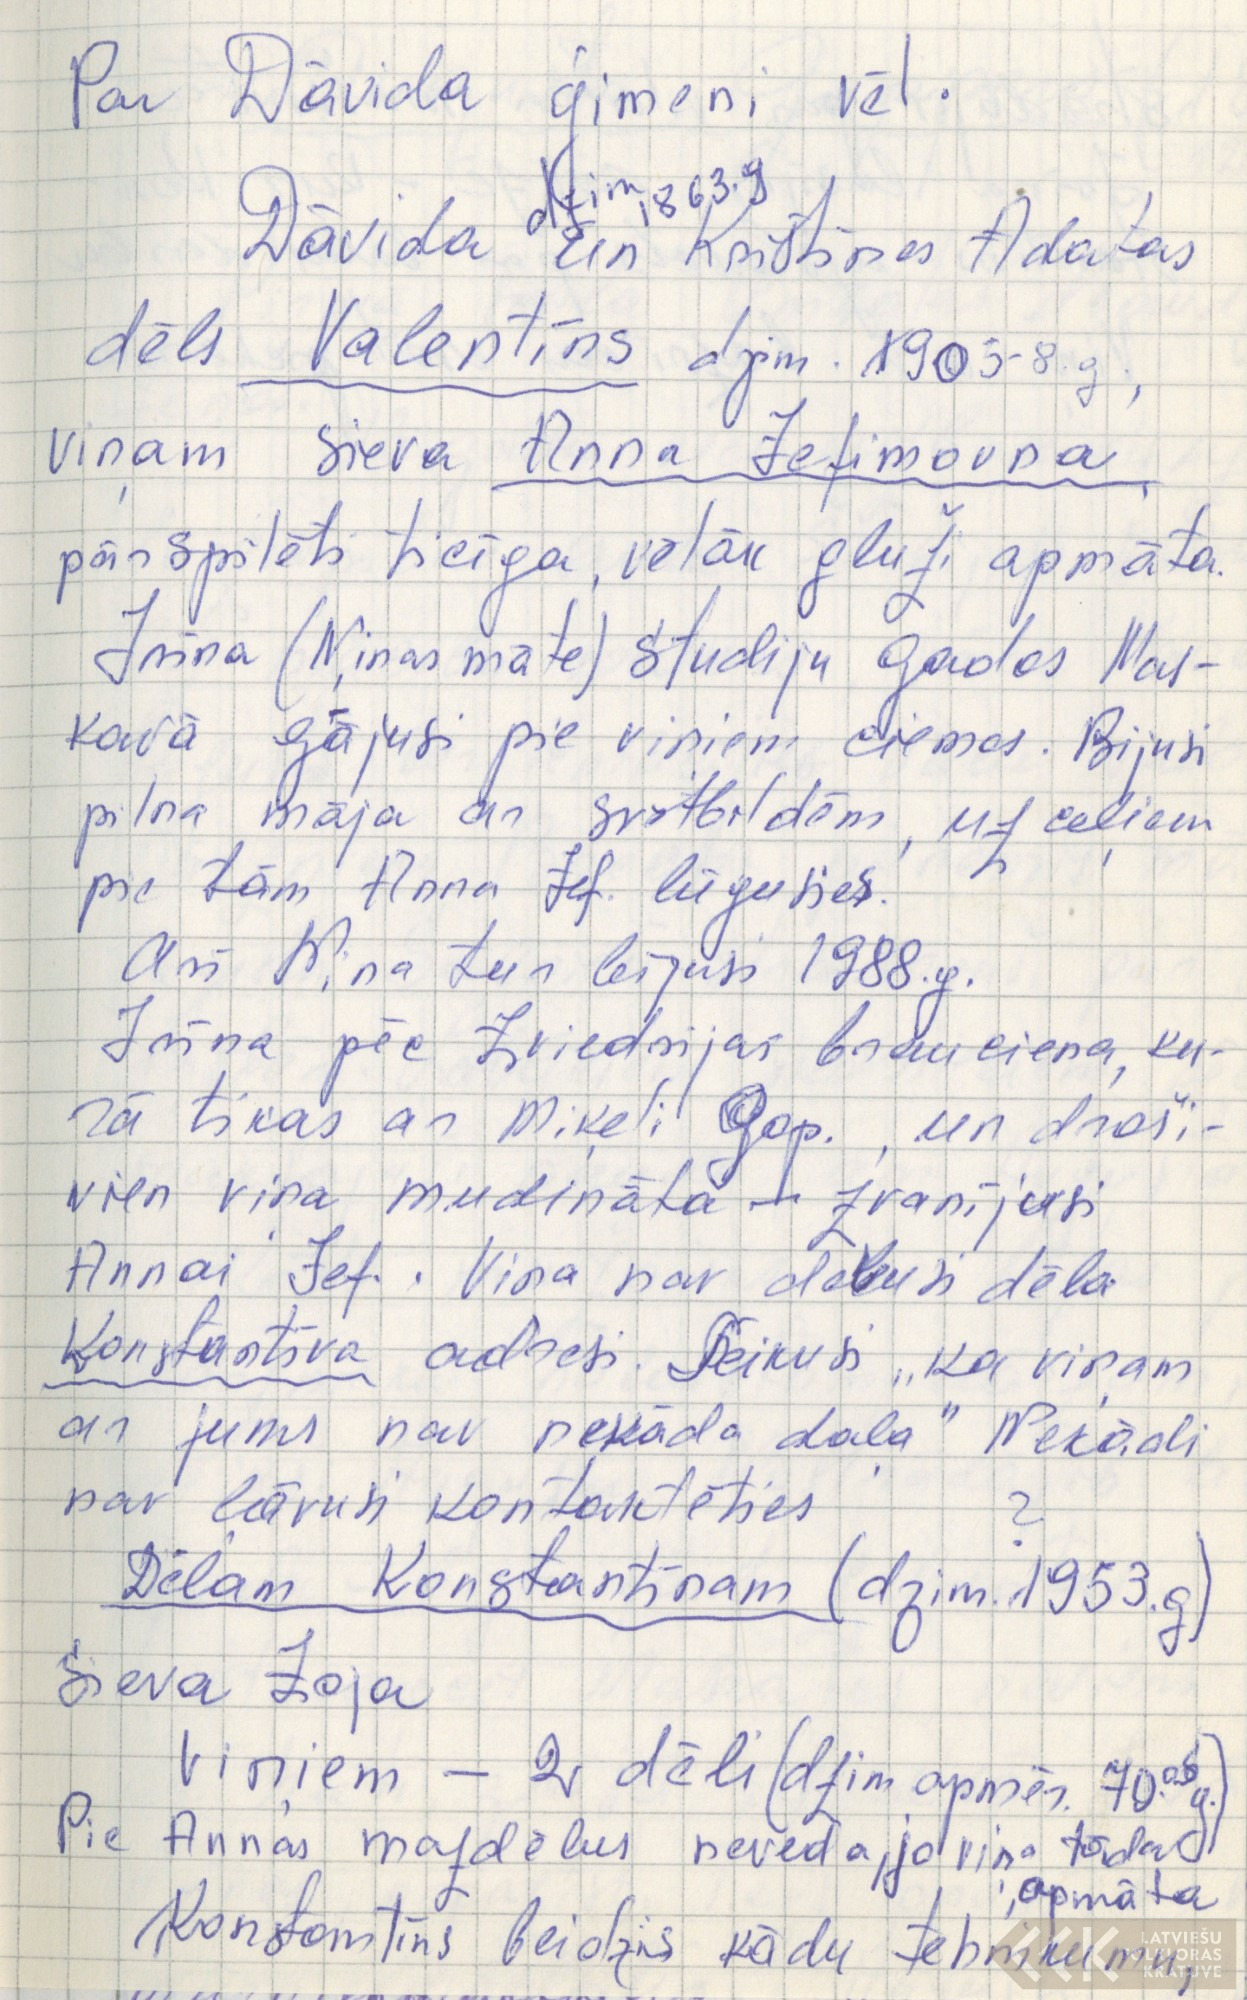 Par Dāvida ģimeni vēl.
dzim. 1863.g
Dāvida un Kristīnes Adatas
dēls Valentīns dzim. 1905-8.g.,
viņam sieva Anna Jefimovna,
pārspīlēti ticīga, vēlāk gluži apmāta.
Irina (Ņinas māte) studiju gados Mas-
kavā gājusi pie viņiem ciemos. Bijusi
pilna māja ar svētbildēm, uz ceļiem
pie tām Anna Jef. lūgusies.
Arī Ņina tur bijusi 1988.g.
Irīna pēc Zviedrijas brauciena, ku-
rā tikās ar Miķeli Gop., un droši-
vien viņa mudināta – zvanījusi
Annai Jef. Viņa nav devusi dēla
Konstantīna adresi. Teikusi „ka viņam
ar jums nav nekāda daļa" Nekādi
nav ļāvusi kontaktēties
?
Dēlam Konstantīnam (dzim. 1953.g)
sieva Zoja
Viņiem – 2 dēli (dzim. apmēr. 70.os g.)
Pie Annas mazdēlus neveda, jo viņa tāda
apmāta
Konstantīns beidzis kādu tehnikumu,
LATVIEŠU
FOLKLORAS
KRĀTUVE